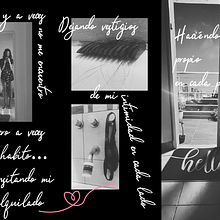 y a veces
no me encuentro
Dejando vestigios
de mi
intimidad en cada lado
Haciendo
propio
en cada
o a veces
habito...
mi
alquilado
hell